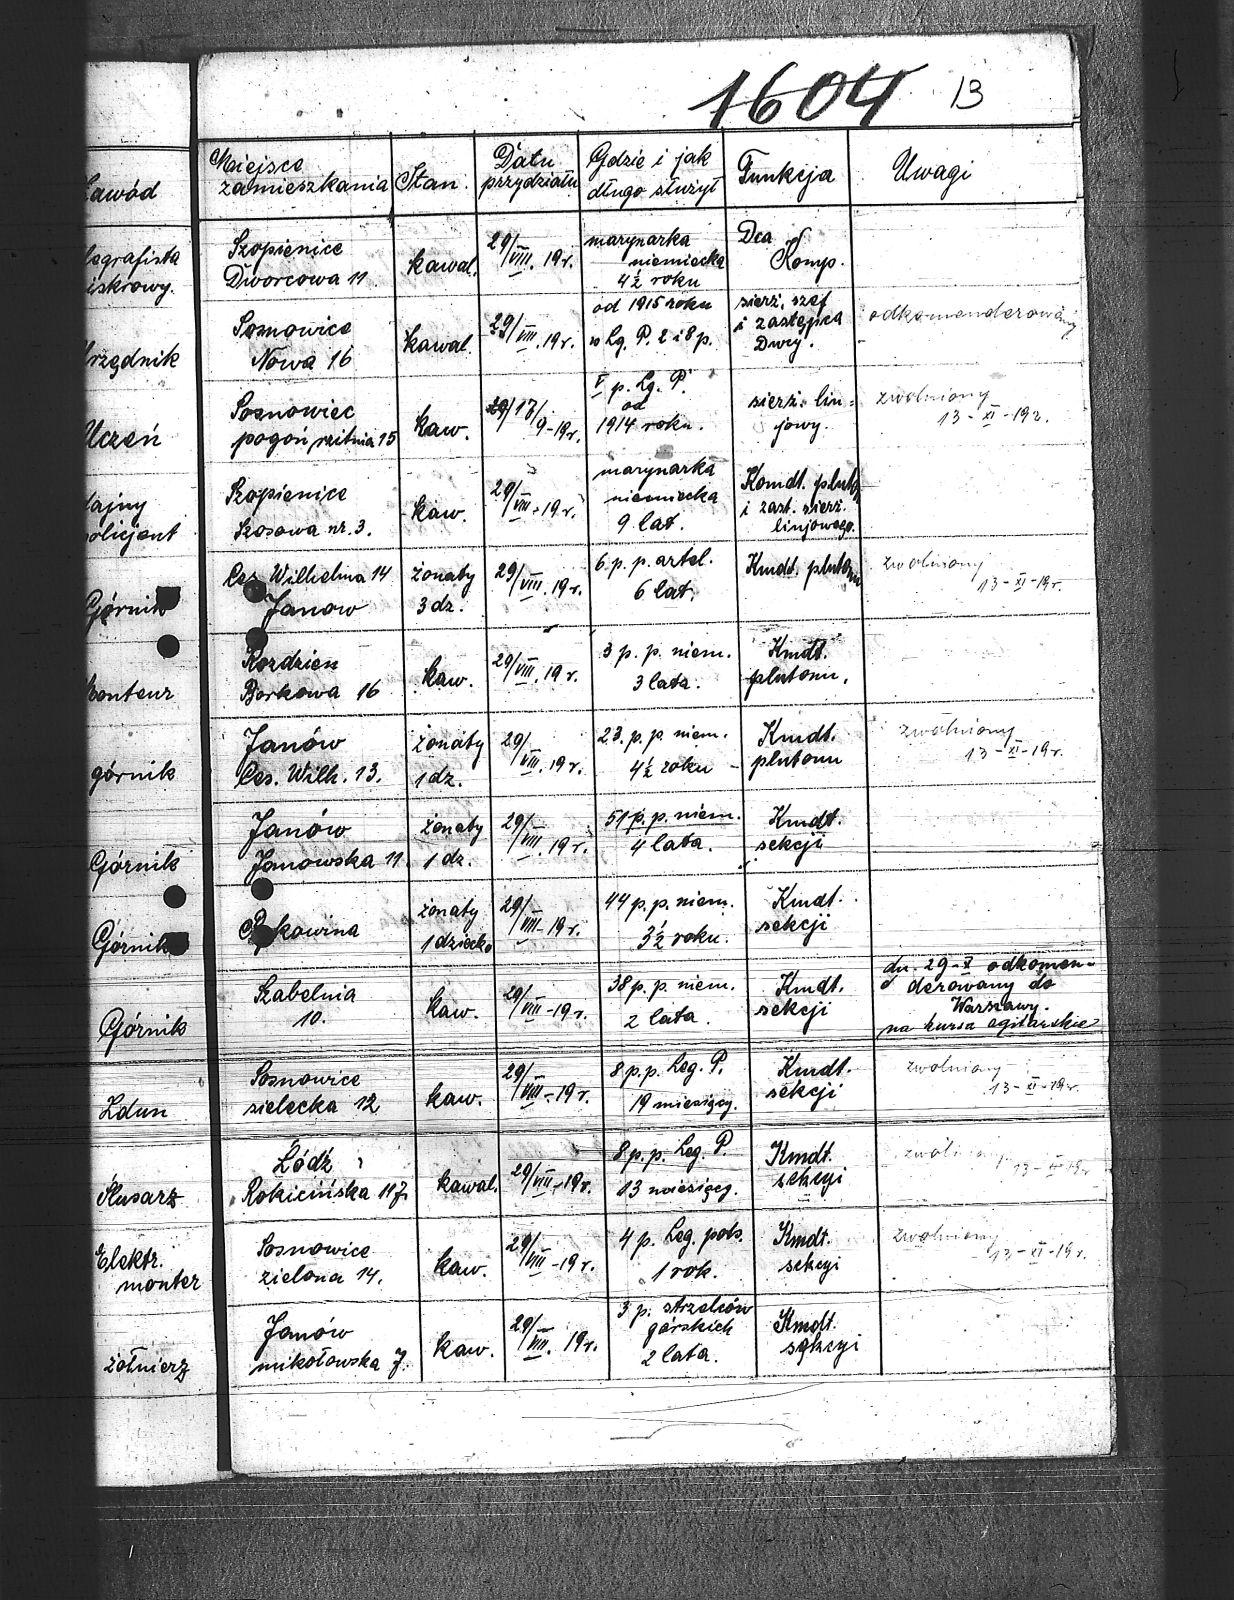 1604 13
Zawód Miejsce zamieszkania Stan. Data przydziału Gdzie i jak długo służył Funkcja Uwagi
legrafista iskrowy. Szopienice Dworcowa 11 kawal. 29/VIII. 19r. marynarka niemiecka 4½ roku Dca Komp.
Urzędnik Sosnowice Nowa 16 kawal. 29/VIII. 19r. od 1915 roku w Lg. P. 2 i 8 p. sierż. szef i zastępca Dwcy. odkomenderowany
Uczeń Sosnowiec pogoń 15 kaw. 17/9-19r. V p. Lg. P. od 1914 roku. sierż. linjowy. zwolniony 13-XI-19r.
tajny policjant Szopienice Szosowa nr. 3. kaw. 29/VIII-19r. marynarka niemiecka 9 lat. Komdt. plut. i zast. sierż. linjowego.
Górnik Ces. Wilhelma 14 Janow żonaty 3 dz. 29/VIII. 19r. 6. p. p. artel. 6 lat. Kmdt. plutonu zwolniony 13-XI-19r.
Monteur Rozdzien Borkowa 16 kaw. 29/VIII. 19r. 3 p. p. niem. 3 lata. Kmdt. plutonu.
górnik Janów Ces. Wilh. 13. żonaty 1 dz. 29/VIII. 19r. 23. p. p. niem. 4½ roku - Kmdt. plutonu zwolniony 13-XI-19r.
Górnik Janów Janowska 11. żonaty 1 dz. 29/VIII. 19r. 51 p. p. niem. 4 lata. Kmdt. sekcji
Górnik żonaty 1 dziecko 29/VIII-19r. 44 p. p. niem. 3½ roku. Kmdt. sekcji
Górnik Szabelnia 10. kaw. 29/VIII-19r. 38 p. p. niem. 2 lata. Kmdt. sekcji dn. 29-X odkomenderowany do Warszawy. na kursa agitarskie
Zdun Sosnowice sielecka 12 kaw. 29/VIII-19r. 8 p. p. Leg. P. 19 miesięcy. Kmdt. sekcji zwolniony 13-XI-19r.
Ślusarz Łódź Rokicińska 117. kawal. 29/VIII-19r. 8 p. p. Leg. P. 13 miesięcy. Kmdt. sekcyi zwolniony 13-XI-19r
Elektr. monter Sosnowice zielona 14. kaw. 29/VIII-19r. 4 p. Leg. pols. 1 rok. Kmdt. sekcyi zwolniony 13-XI-19r.
żołnierz Janów mikołowska 7. kaw. 29/VIII. 19r. 3 p. strzelców górskich 2 lata. Kmdt. sekcyi